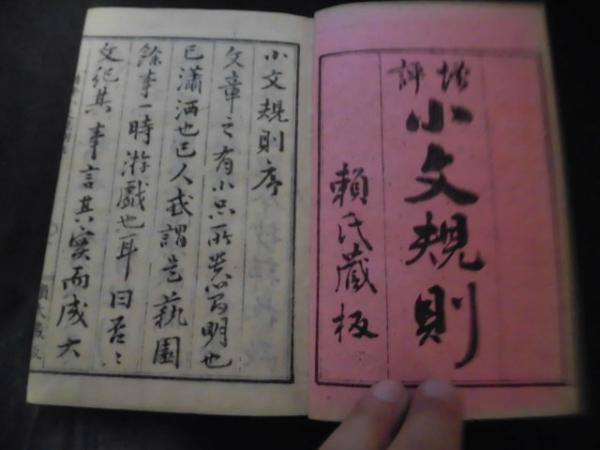 増評
小文規則
頼氏藏板
小文規則序
文章之有小品所
明也
已瀟洒也已人或謂是藝園
餘事一時游戲也耳曰否〻
文紀其事言其實而成大